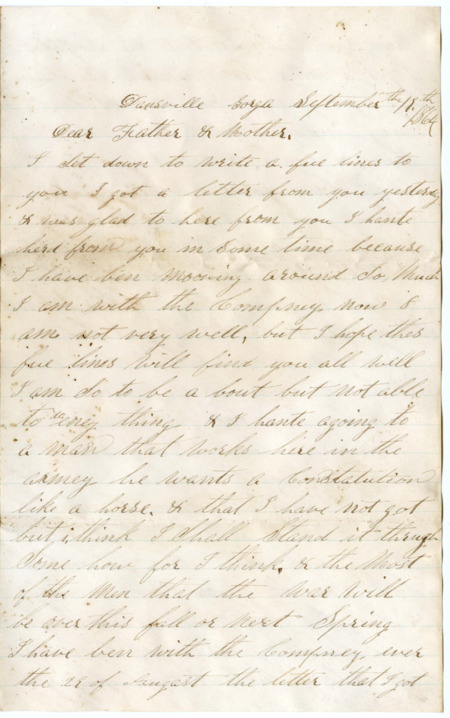 Dansville Gorga September the 18th
1864
Dear Father & Mother.
I set down to write a fue lines to
you I got a letter from you yesterday
& was glad to here from you I hante
herd from you in some time because
I have ben mooving around so Much
I am with the Compney now &
am not very well, but I hope this
fue lines will find you all well
I am so to be a bout but not able
to do eney thing & I hante agoing to
a man that works here in the
armey he wants a Constatution
like a horse. & that I have not got
but i think I shall stand it through
some how for I think, & the Most
of the Men that the war will
be over this fall or next Spring
I have ben with the Compney ever
the of august the letter that I got